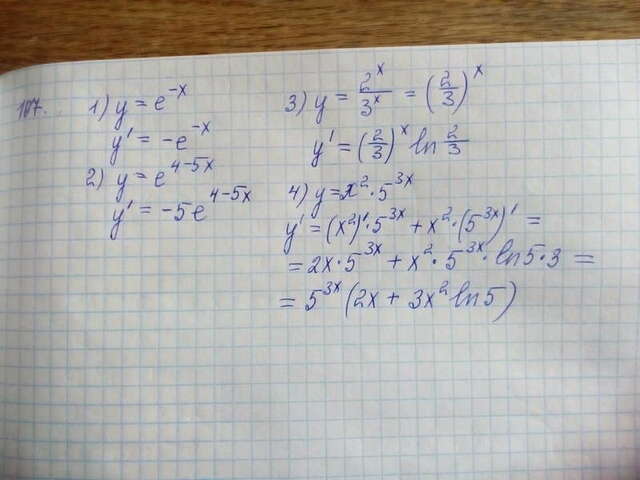 107.
1) y = e^{-x}
y' = -e^{-x}
2) y = e^{4-5x}
y' = -5e^{4-5x}
3) y = \frac{2^x}{3^x} = (\frac{2}{3})^x
y' = (\frac{2}{3})^x ln \frac{2}{3}
4) y = x^2 · 5^{3x}
y' = (x^2)' · 5^{3x} + x^2 · (5^{3x})' =
= 2x · 5^{3x} + x^2 · 5^{3x} · ln 5 · 3 =
= 5^{3x} (2x + 3x^2 ln 5)